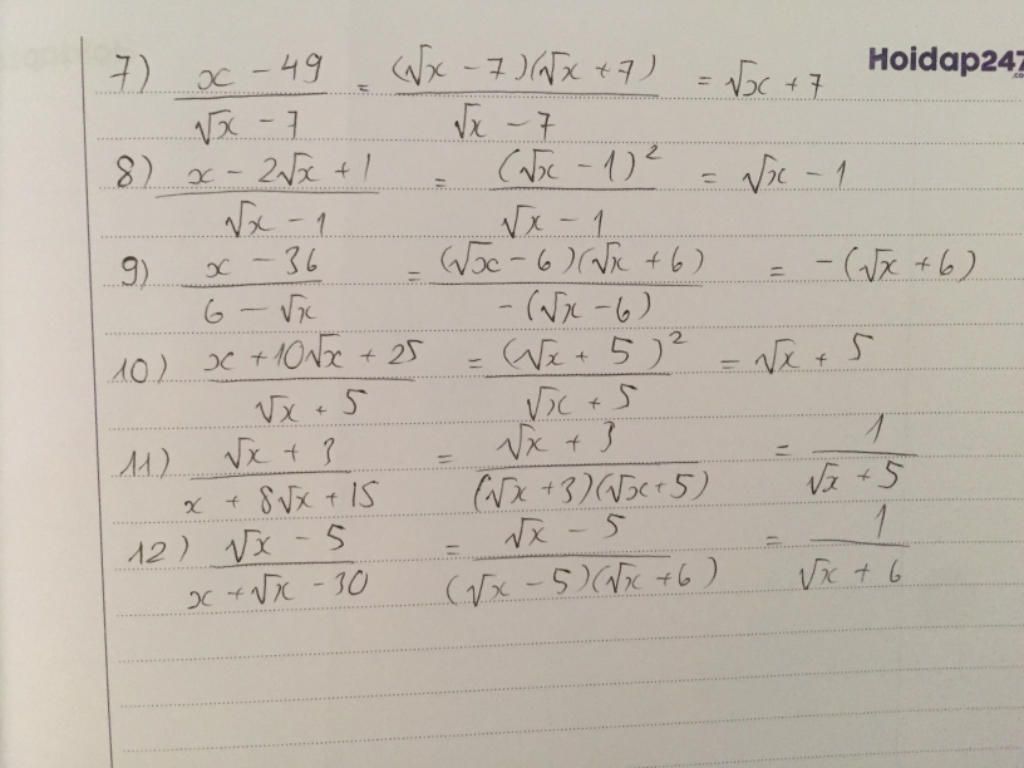 Hoidap247.com
7) (x - 49)/(√x - 7) = ((√x - 7)(√x + 7))/(√x - 7) = √x + 7
8) (x - 2√x + 1)/(√x - 1) = (√x - 1)²/(√x - 1) = √x - 1
9) (x - 36)/(6 - √x) = ((√x - 6)(√x + 6))/(-(√x - 6)) = -(√x + 6)
10) (x + 10√x + 25)/(√x + 5) = (√x + 5)²/(√x + 5) = √x + 5
11) (√x + 3)/(x + 8√x + 15) = (√x + 3)/((√x + 3)(√x + 5)) = 1/(√x + 5)
12) (√x - 5)/(x + √x - 30) = (√x - 5)/((√x - 5)(√x + 6)) = 1/(√x + 6)